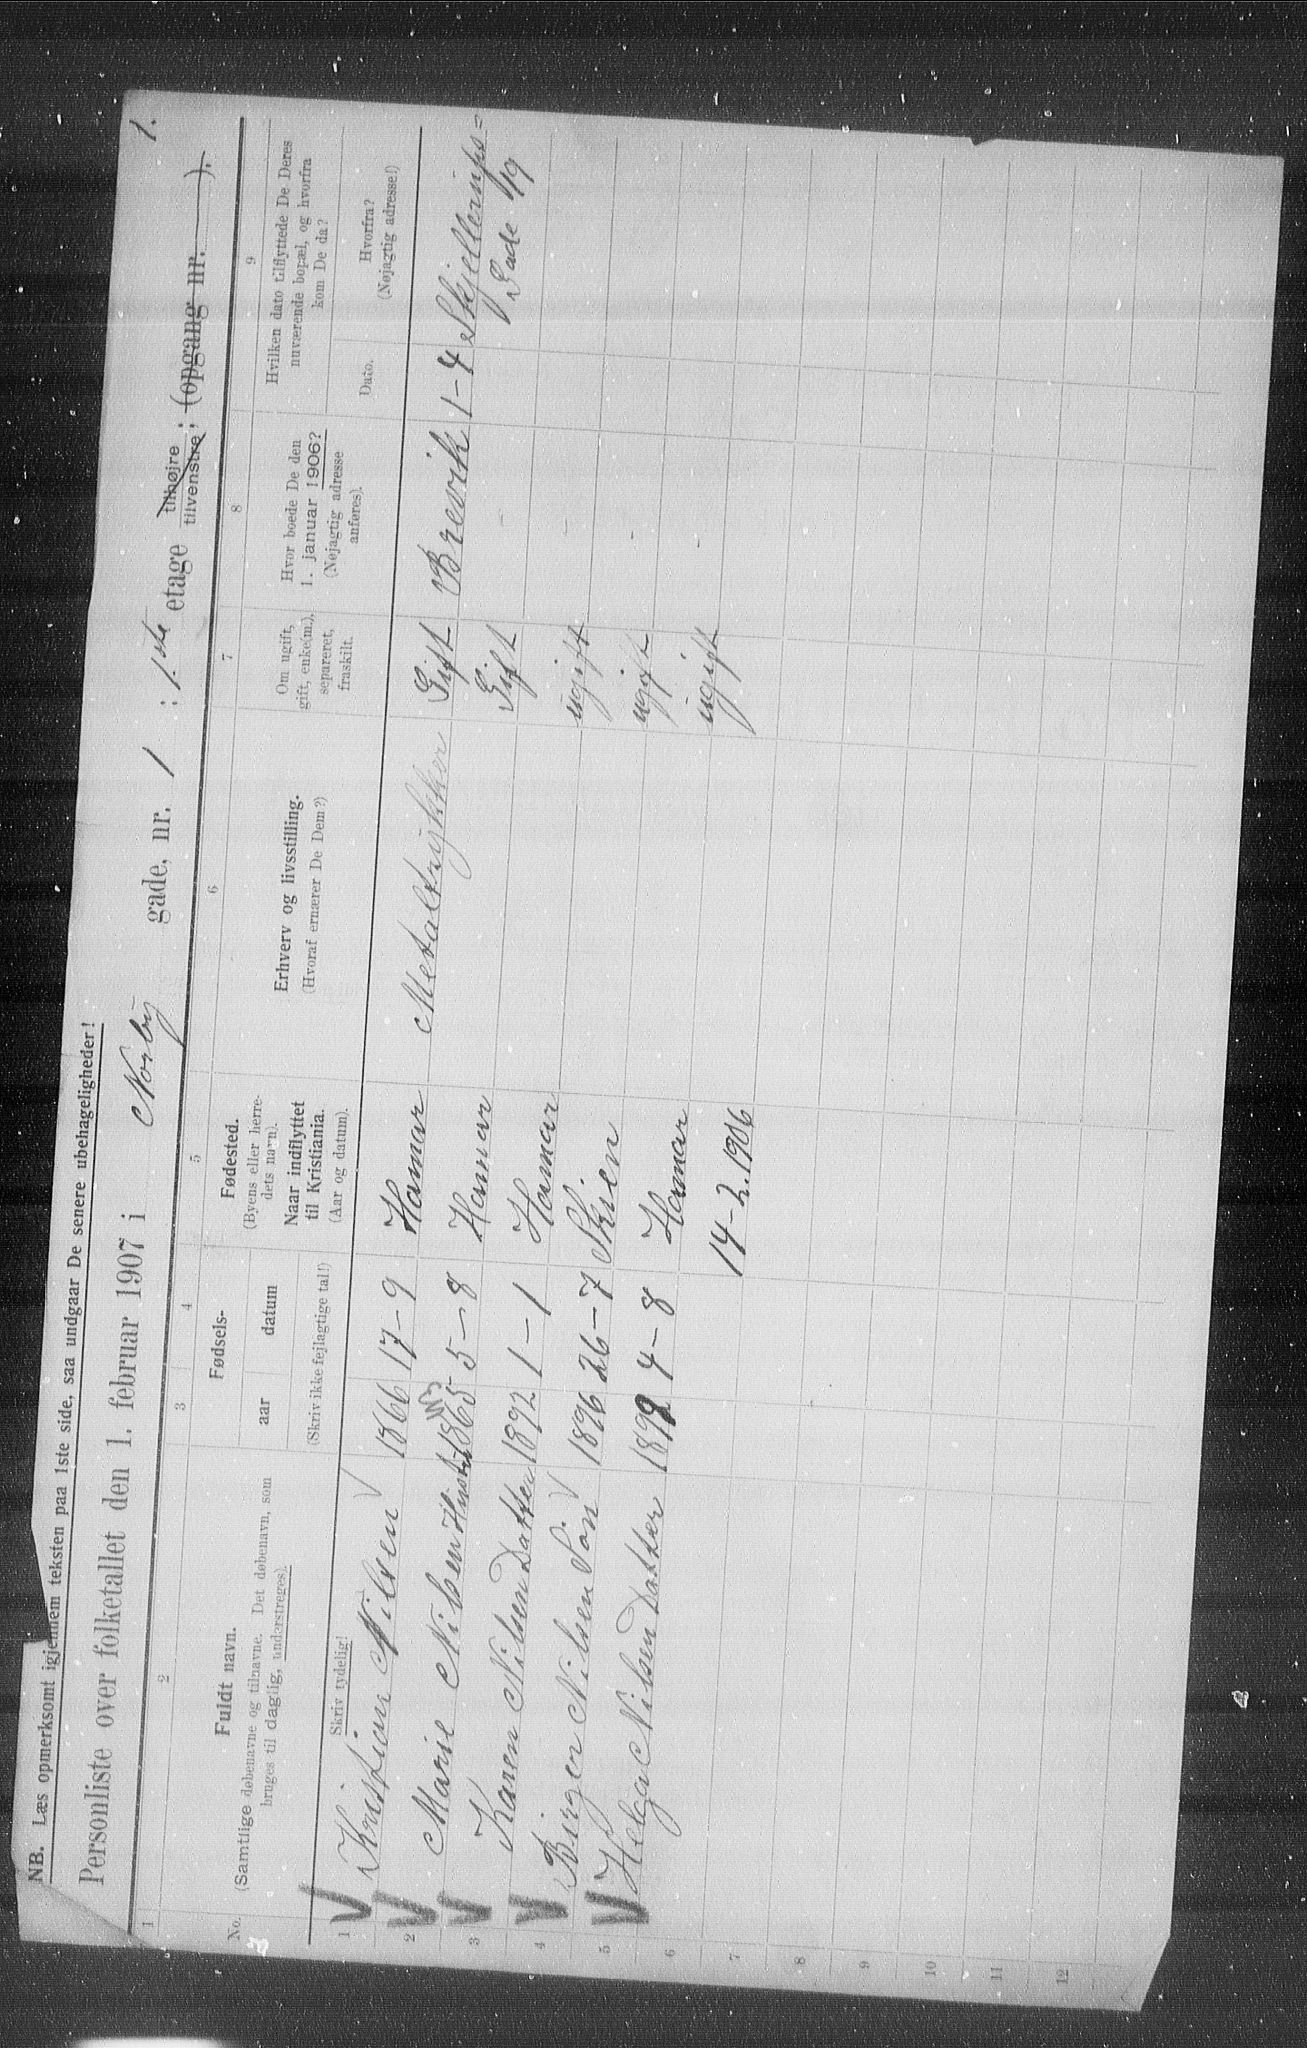 NB. Læs opmerksomt igjennem teksten paa 1ste side, saa undgaar De senere ubehageligheder!
1.
Personliste over folketallet den 1. februar 1907 i Norby gade, nr. 1 : 1.ste etage tilhøjre tilvenstre; (opgang nr. ).
1 2 3 4 5 6 7 8 9
No.
Fuldt navn.
(Samtlige døbenavne og tilnavne. Det døbenavn, som
bruges til daglig, understreges).
Skriv tydelig!
Fødsels-
aar datum
(Skriv ikke fejlagtige tal!)
Fødested.
(Byens eller herre-
dets navn).
Naar indflyttet
til Kristiania.
(Aar og datum).
Erhverv og livsstilling.
(Hvoraf ernærer De Dem?)
Om ugift,
gift, enke(m.),
separeret,
fraskilt.
Hvor boede De den
1. januar 1906?
(Nøjagtig adresse
anføres).
Hvilken dato tilflyttede De Deres
nuværende bopæl, og hvorfra
kom De da?
Dato.
Hvorfra?
(Nøjagtig adresse!)
1 Kristian Nilsen 1866 17-9 Hamar Metaltrykker Gift Brevik 1-4 Skjellerups=
Gade 1/19
2 Marie Nilsen Hustru 1865 5-8 Hamar Gift
3 Karen Nilsen Datter 1892 1-1 Hamar ugift
4 Birger Nilsen Sön 1896 26-7 Skien ugift
5 Helga Nilsen Datter 1892 4-8 Hamar ugift
6 14-2.1906
7
8
9
10
11
12